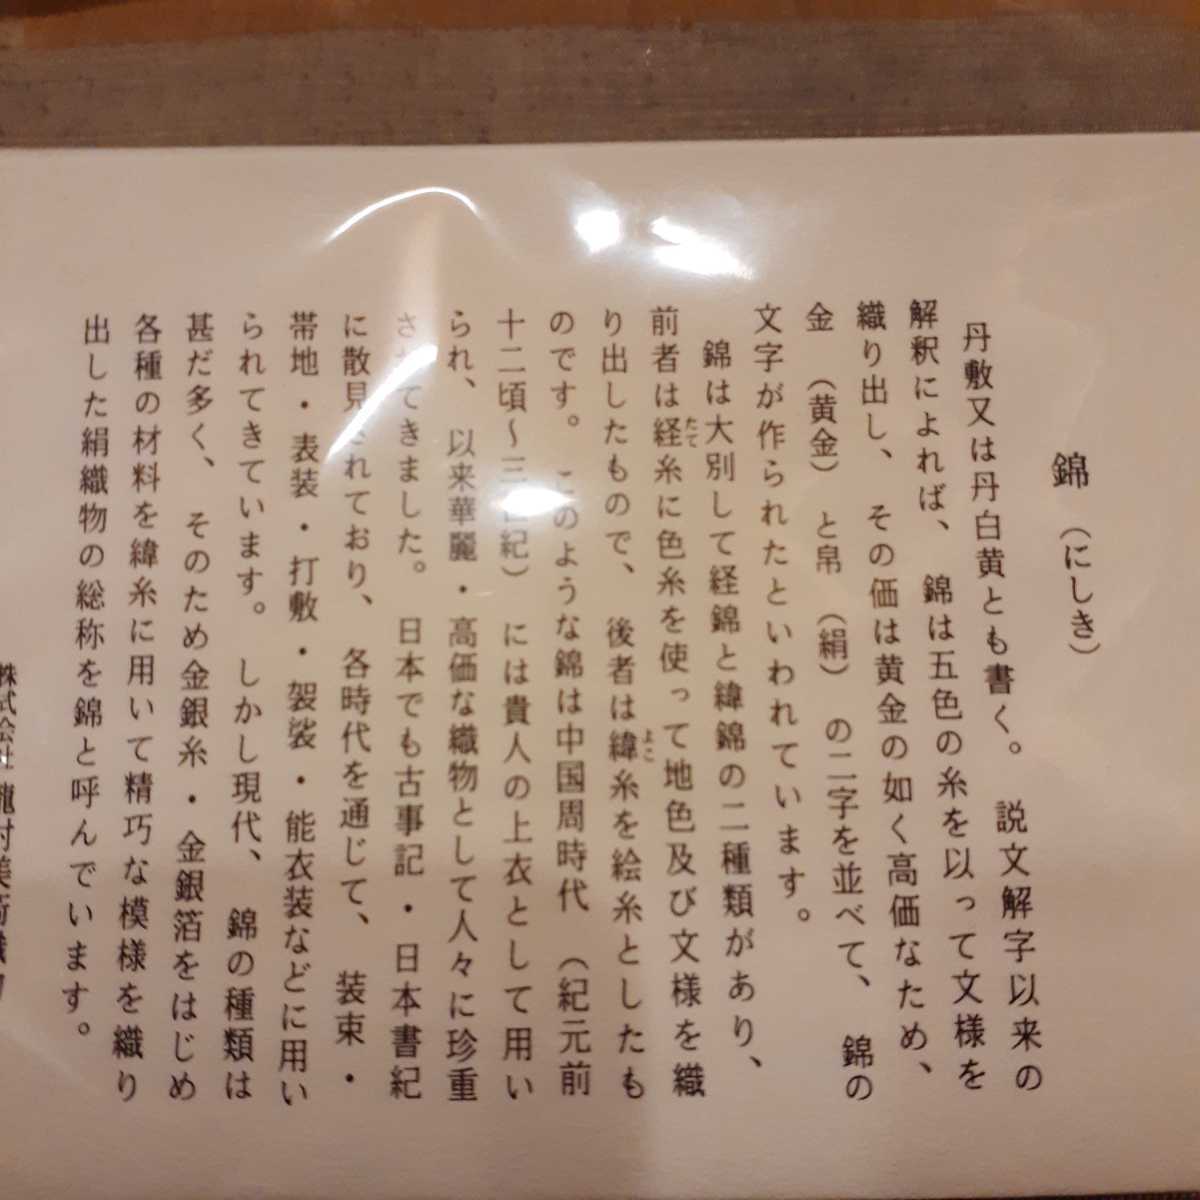 錦（にしき）
丹敷又は丹白黄とも書く。説文解字以来の
解釈によれば、錦は五色の糸を以って文様を
織り出し、その価は黄金の如く高価なため、
金（黄金）と帛（絹）の二字を並べて、錦の
文字が作られたといわれています。
錦は大別して経錦と緯錦の二種類があり、
前者は経糸に色糸を使って地色及び文様を織
たて
り出したもので、後者は緯糸を絵糸としたも
よこ
のです。このような錦は中国周時代（紀元前
十二頃～三世紀）には貴人の上衣として用い
られ、以来華麗・高価な織物として人々に珍重
されてきました。日本でも古事記・日本書紀
に散見されており、各時代を通じて、装束・
帯地・表装・打敷・袈裟・能衣装などに用い
られてきています。しかし現代、錦の種類は
甚だ多く、そのため金銀糸・金銀箔をはじめ
各種の材料を緯糸に用いて精巧な模様を織り
出した絹織物の総称を錦と呼んでいます。
株式会社龍村美術織